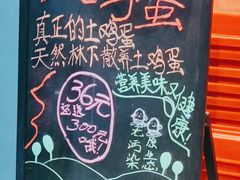 鸡蛋
真正的土鸡蛋
天然林下散养土鸡蛋
营养美味又健康
36元
还送300元
无污染
原生态